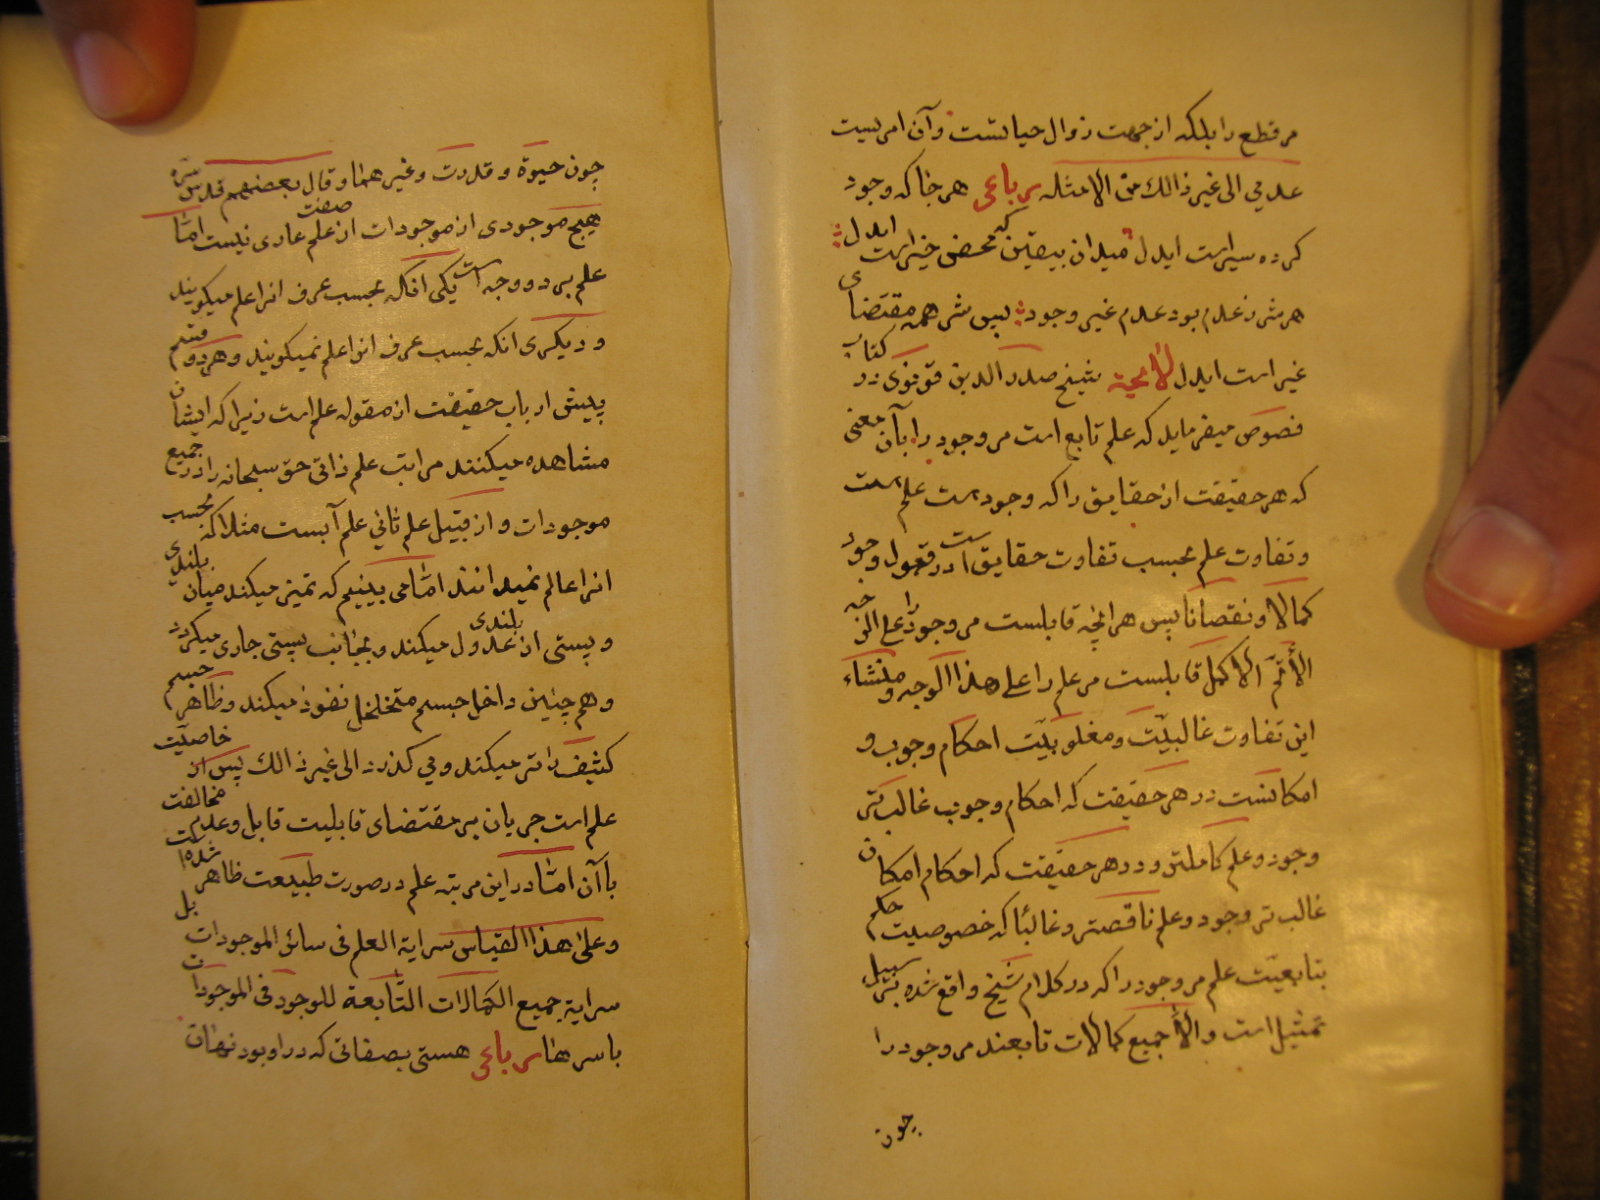 مر قطع را بلکه از جهت زوال حیاتست و آن امریست
عدمی الی غیر ذالك من الامثله رباعی هر جا که وجود
کرده سیرست ایدل میدان بیقین که محض خیرست ایدل
هر شر ز عدم بود عدم غیر وجود پس شر همه مقتضای
غیر است ایدل لائحة شیخ صدر الدین قونوی در کتاب
فصوص میفرماید که علم تابع است مر وجود را بآن معنی
که هر حقیقت از حقایق را که وجود هست علم هست
و تفاوت علم بحسب تفاوت حقایق است در قبول وجود
کمالا و نقصانا پس هر آنچه قابلست مر وجود را علی الوجه
الأتمّ الاکمل قابلست مر علم را علی هذا الوجه و منشاء
این تفاوت غالبیّت و مغلوبیّت احکام وجوب و
امکانست در هر حقیقت که احکام وجوب غالب تر
وجود و علم کاملتر و در هر حقیقت که احکام امکان
غالب تر وجود و علم ناقصتر و غالبًا که خصوصیت حکم
بتابعیّت علم مر وجود را که در کلام شیخ واقع شده بر سبیل
تمثیل است والاّ جمیع کمالات تابعند مر وجود را
چون
چون حیوة و قدرت و غیر هما و قال بعضهم قدس سره
هیچ موجودی از موجودات از صفت علم عاری نیست امّا
علم بر دو وجه است یکی آنکه بحسب عرف انرا علم میکویند
و دیکری انکه بحسب عرف انرا علم نمیکویند و هر دو قسم
پیش ارباب حقیقت از مقوله علم است زیرا که ایشان
مشاهده میکنند مراتب علم ذاتی حق سبحانه را در جمیع
موجودات و از قبیل علم ثانی علم آبست مثلا که بحسب
انرا عالم نمیدانند امّا می بینیم که تمیز میکند میان بلندی
و پستی از بلندی عدول میکند و بجانب پستی جاری میکردد
و هم چنین داخل جسم متخلخل نفوذ میکند و ظاهر جسم
کثیف را تر میکند و می کذرد الی غیر ذالك پس از خاصیّت
علم است جریان بر مقتضای قابلیت قابل و عدم مخالفت
با آن امّا در این مرتبه علم در صورت طبیعت ظاهر شده است
و علی هذا القیاس سرایة العلم فی سائر الموجودات بل
سرایة جمیع الکمالات التّابعة للوجود فی الموجودات
باسرها رباعی هستی بصفاتی که در او بود نهان